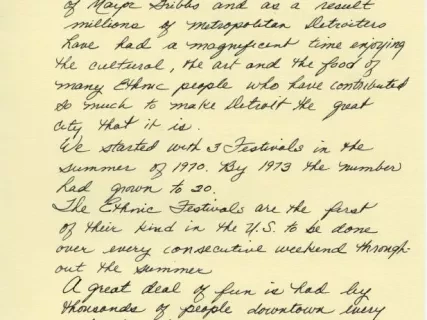 of Mayor Gribbs and as a result
millions of metropolitan Detroiters
have had a magnificent time enjoying
the cultural, the art and the food of
many Ethnic people who have contributed
so much to make Detroit the great
city that it is.
We started with 3 Festivals in the
summer of 1970. By 1973 the number
had grown to 20.
The Ethnic Festivals are the first
of their kind in the U.S. to be done
over every consecutive weekend through-
out the summer
A great deal of fun is had by
thousands of people downtown every